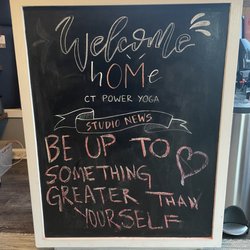 Welcome
hOMe
CT POWER YOGA
STUDIO NEWS
BE UP TO
SOMETHING
GREATER THAN
YOURSELF